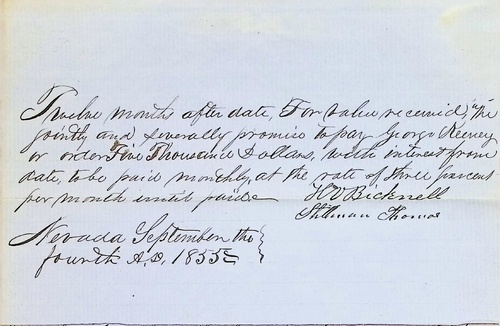 Twelve months after date, For value received, "We
jointly and severally promise to pay George Keeney
or order Five Thousand Dollars, with interest from
date, to be paid monthly, at the rate of three per cent
per month until paid
H V Bicknell
Stillman Thomas
Nevada September the
fourth A.D. 1855